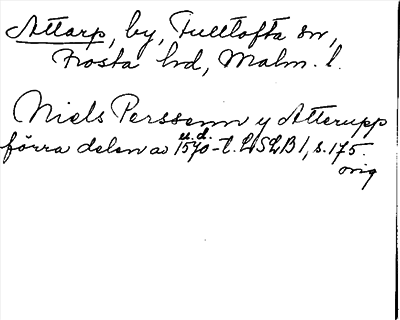 Attarp, by, Fulltofta sn,
Frosta hd, Malm. l.
Niels Perssenn y Atterupp
u.d.
förra delen av 1570-t. LSLB 1, s. 175.
orig